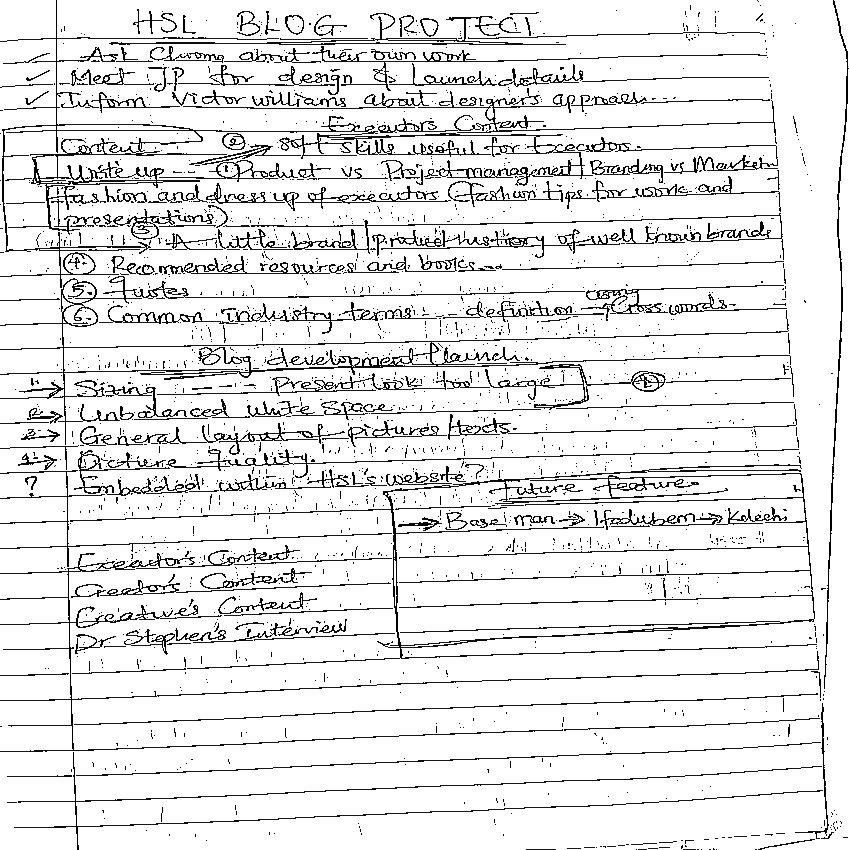 HSL BLOG PROJECT
✓ Ask Chwoma about their own work
✓ Meet JP for design & Launch details
✓ Inform Victor williams about designer's approach...
Executor's Content.
Content ② → soft skills useful for Executors.
Write up --- ① Product vs Project management | Branding vs Marketn
fashion and dress up of executors (fashion tips for work and
presentations)
③ A little brand/product history of well known brands
④. Recommended resources and books...
⑤. Quotes
⑥. Common Industry terms --- definition → Cross words.
Blog development/launch.
1 → Sizing ---- Present look too large
2 → Unbalanced White Space
3 → General layout of pictures/texts.
4 → Picture Quality.
? Embedded within HSL's website?
Future feature
→ Base man → Ifedubem → Kelechi
Executor's Content
Creator's Content
Creative's Content
Dr Stephen's Interview